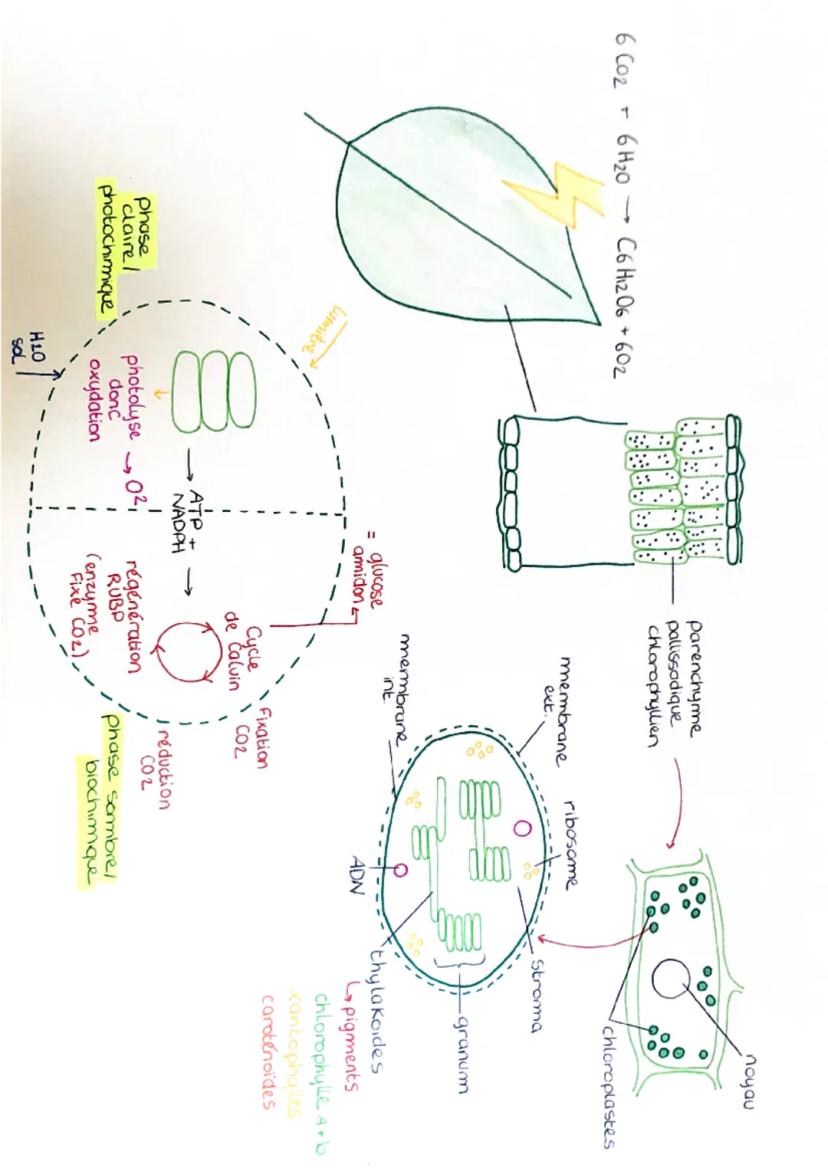 6 CO2 + 6 H2O → C6H12O6 + 6O2
parenchyme
pallissadique
chlorophyllien
noyau
chloroplastes
membrane
ext.
ribosome
stroma
granum
thylakoides
↳ pigments
chlorophylle A+b
xantophylles
caroténoïdes
ADN
membrane
int.
lumière
phase
claire/
photochimique
H2O
sol
photolyse
donc
oxydation
→ O2
→ ATP +
NADPH →
= glucose
amidon
Cycle
de Calvin
fixation
CO2
réduction
CO2
régénération
RUBP
(enzyme
Fixe CO2)
phase sombre/
biochimique